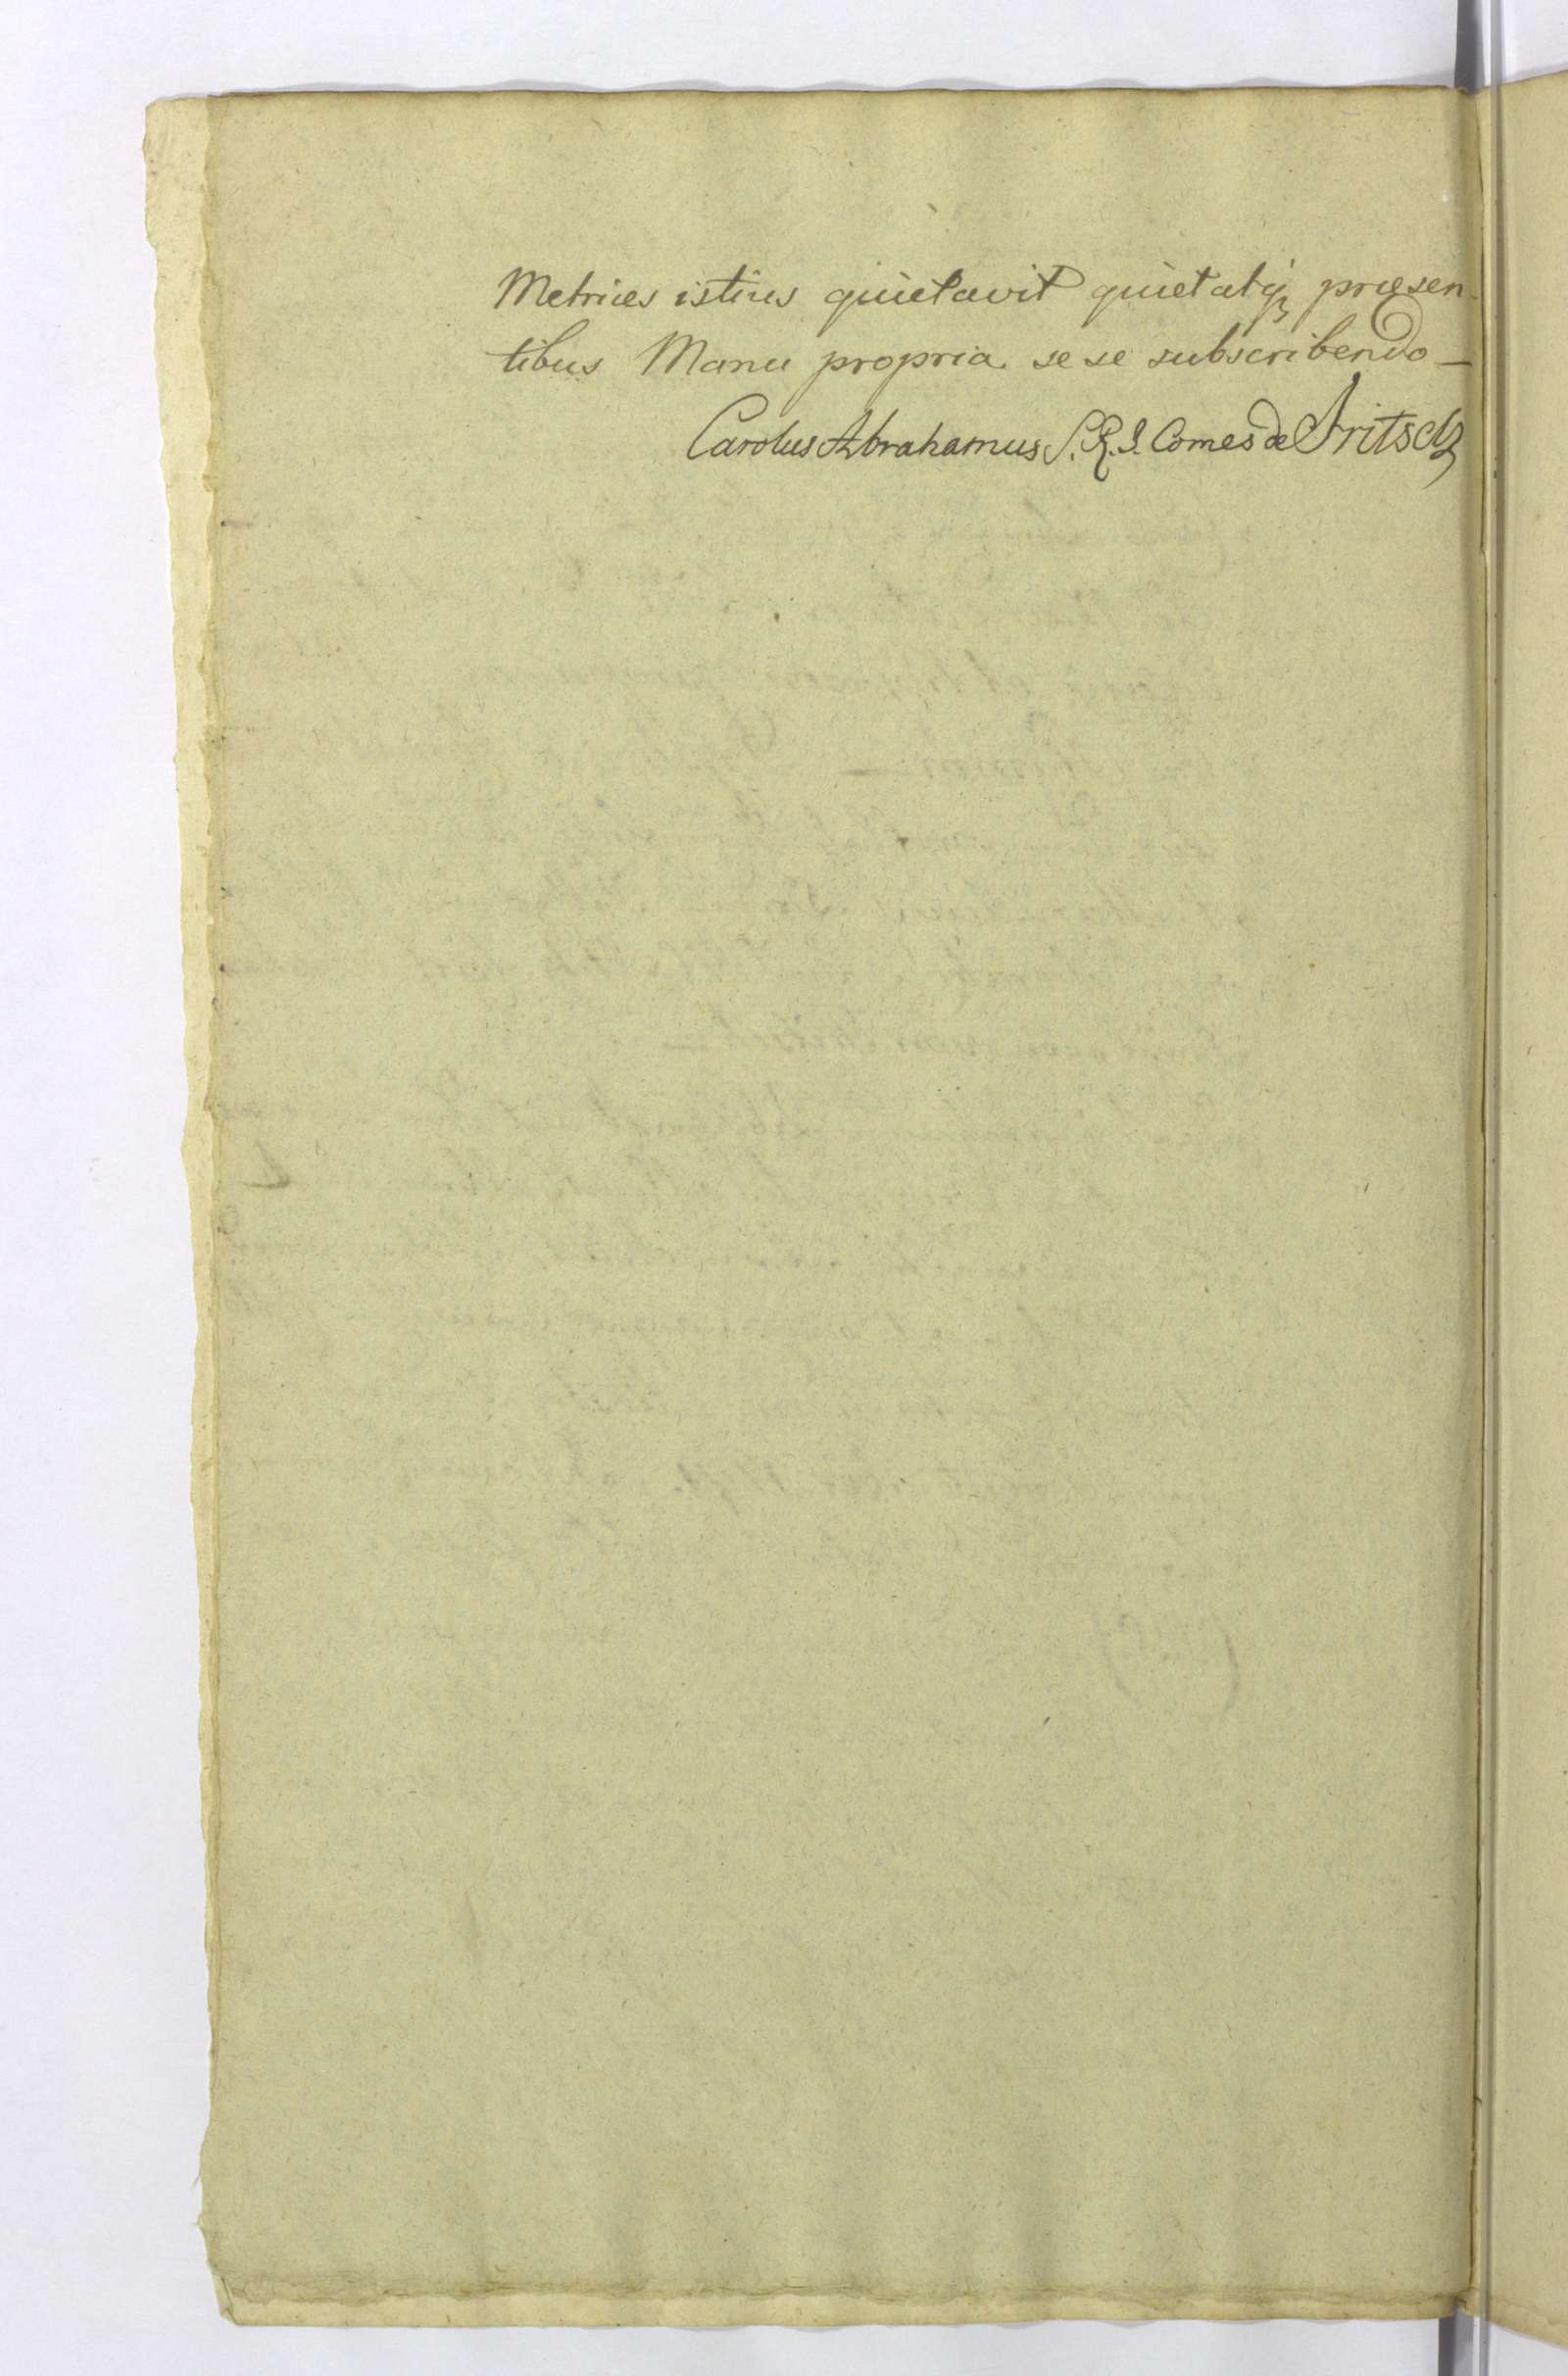 Metrices istius quietavit quietatq, præsen-
tibus Manu propria se se subscribendo –
Carolus Abrahamus S. R. I. Comes de Fritsch